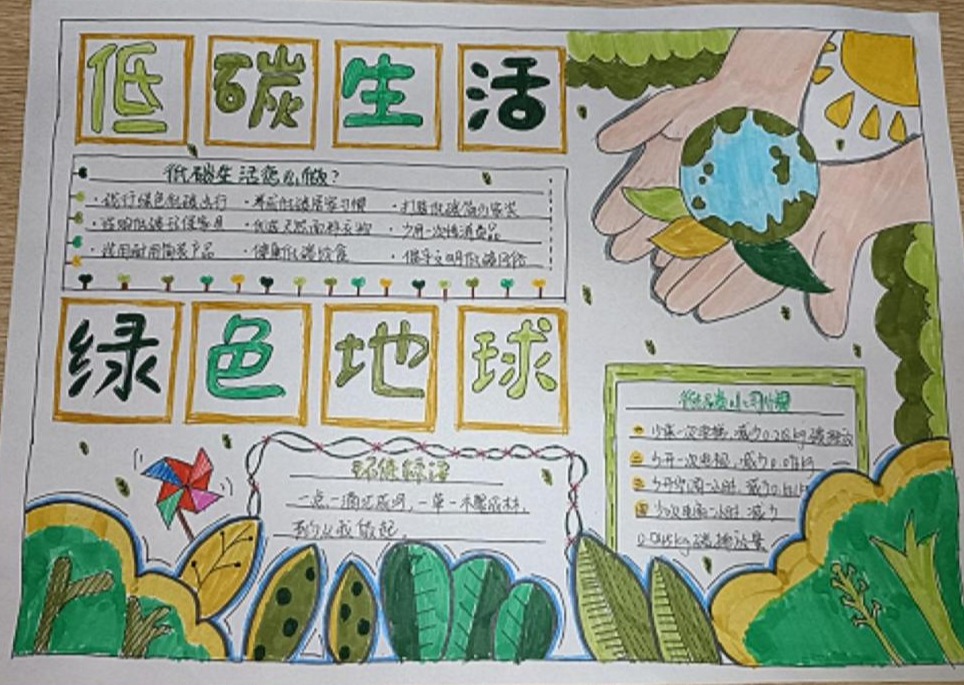 低碳生活
低碳生活怎么做？
·践行绿色低碳出行 ·养成低碳居家习惯 ·打造低碳简约家装
·选购低碳环保家具 ·优选天然面料衣物 ·少用一次性消费品
·选用耐用简装产品 ·健康低碳饮食 ·倡导文明低碳风俗
绿色地球
低碳小习惯
一 少乘一次电梯，减少0.218kg碳排放
二 少开一次电视，减少
三 少开空调一小时，减少
四 少 一小时，减少
kg碳排放量
环保标语
一点一滴汇成河，一草一木聚成林，
从我做起。